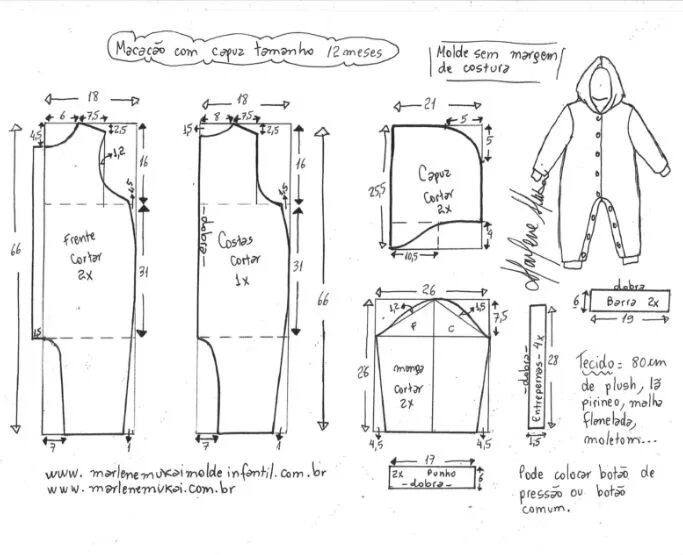 Macacão com capuz tamanho 12 meses
Molde sem margem
de costura
18
6
7,5
4,5
2,5
1,2
16
66
Frente
Cortar
2x
31
1,5
7
1
18
8
7,5
1,5
2,5
16
dobra
Costas
Cortar
1x
31
66
7
1
21
5
5
Capuz
Cortar
2x
25,5
10,5
4
26
1,2
1,5
7,5
F
C
26
manga
cortar
2x
4,5
4,5
17
2x Punho
-dobra-
6
Marlene Mukai
dobra
6
Barra 2x
19
-dobra-
Entrepernas-4x
28
1,5
Tecido= 80cm
de plush, lã
pirineo, malha
flanelada,
moletom...
Pode colocar botão de
pressão ou botão
comum.
www.marlenemukaimoldeinfantil.com.br
www.marlenemukai.com.br